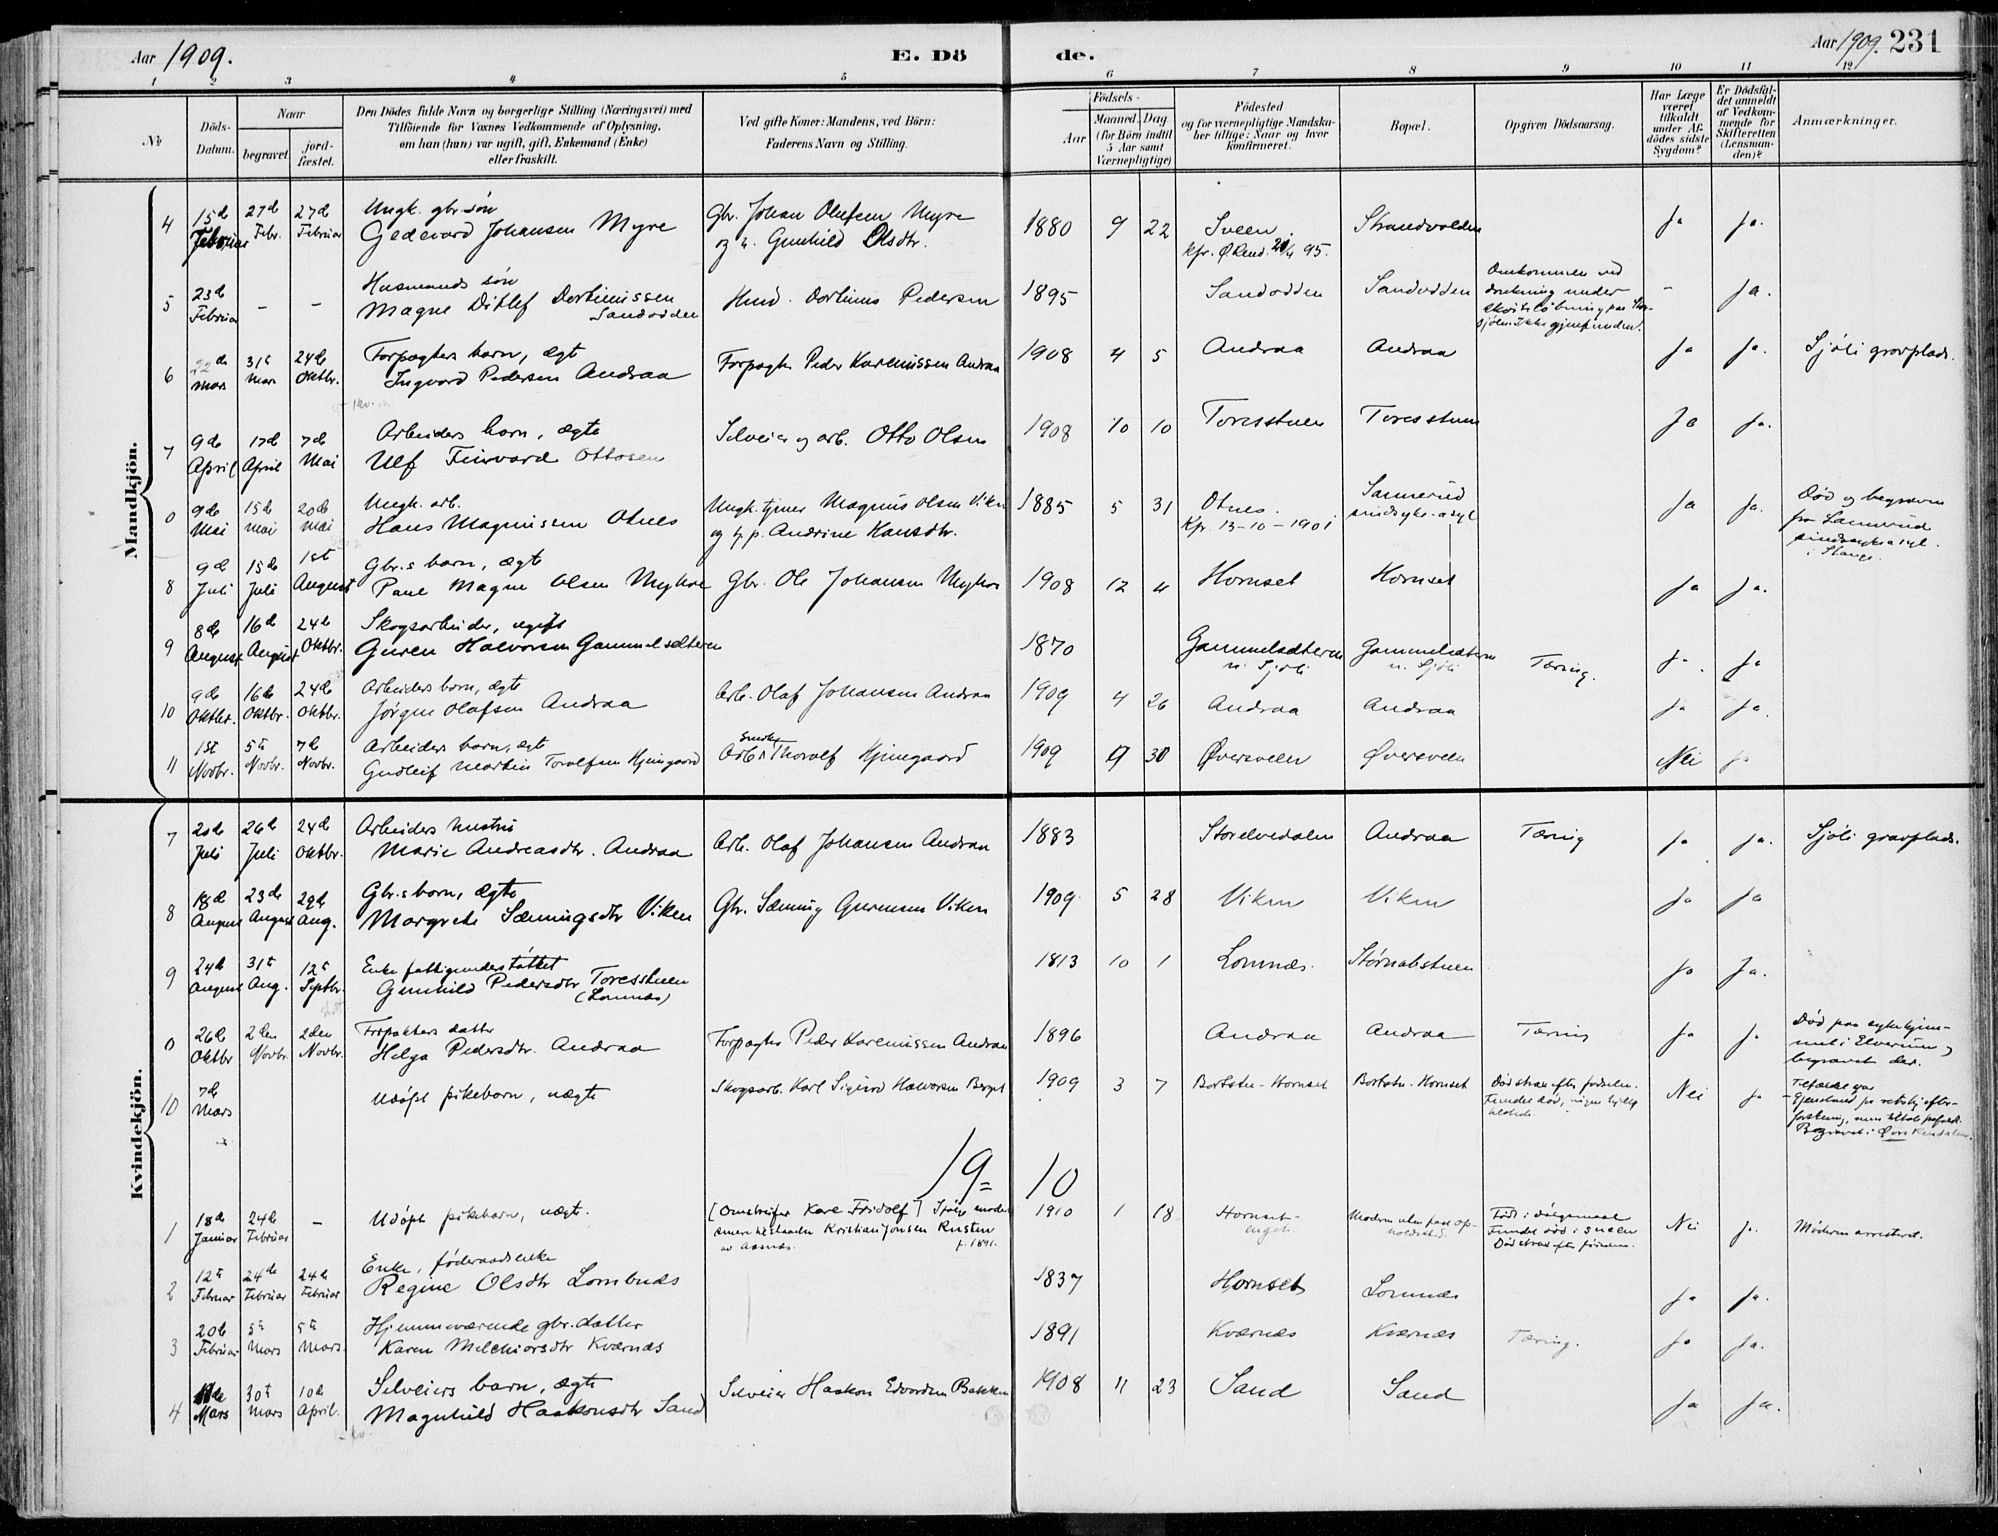 Aar 1909.
E. Dö
de.
Aar 1909. 231
1 2 3 4 5 6 7 8 9 10 11 12
№
Döds-Datum.
Naar
begravet.
jord-fæstet.
Den Dödes fulde Navn og borgerlige Stilling (Næringsvei) med
Tilföiende for Voxnes Vedkommende af Oplysning,
om han (hun) var ugift, gift, Enkemand (Enke)
eller fraskilt.
Ved gifte Koner: Mandens, ved Börn:
Faderens Navn og Stilling.
Födsels-
Aar
Maaned. Dag
(for Börn indtil
5 Aar samt
Værnepligtige)
Födested
og for værnepligtige Mandska-
ber tillige: Naar og hvor
konfirmeret.
Bopæl.
Opgiven Dödsaarsag.
Har Læge
været
tilkaldt
under Af-
dödes sidste
Sygdom?
Er Dödsfal-
det anmeldt
af Vedkom-
mende for
Skifteretten
(Lensman-
den)?
Anmærkninger.
Mandkjön.
4 15de Februar 27de Febr. 27de Februar Ungk. gbr. søn
Gedevard Johansen Myre Gbr. Johan Olufsen Myre
og h. Gunhild Olsdtr. 1880 9 22 Sveen. Strandvolden Ja Ja.
kfr. Ø.Rend. 95.
5 23de Februar - - Husmands søn
Magne Ditlef Dortinussen
Sandodden Husmd. Dortinus Pedersen 1895 Sandodden Sandodden Omkommen ved
drukning under
skøiteløbning paa Stor-
sjøen. Ikke gjenfunden. - Ja.
6 22de Mars 31te Mars 24de Oktbr. Forpagters barn, ægte
Ingvard Pedersen Andraa Forpagter Peder Karenussen Andraa 1908 4 5 Andraa Andraa Ja Ja. Sjøli gravplads.
7 9de April 17de April 7de Mai Arbeiders barn, ægte
Ulf Feirvard Ottosen Selveier og arb. Otto Olsen 1908 10 10 Toresstuen Toresstuen Ja Ja.
0 9de Mai 15de Mai 20de Mai Ungk. arb.
Hans Magnussen Otnes Ungk. tjener Magnus Olsen Viken
og p. Andrine Hansdtr. 1885 5 31 Otnes.
Kfr. 13-10-1901 Sannerud
sindsyke-asyl Ja Ja. Død og begraven
fra Sannerud
sindssykeasyl.
i Stange.
8 9de Juli 15de Juli 1ste August Gbr.s barn, ægte
Paul Magne Olsen Myhre Gbr. Ole Johansen Myhre 1908 12 4 Hornset Hornset Ja Ja.
9 8de August 16de August 24de Oktbr. Skogsarbeider, ugift
Guren Halvorsen Gammelsætteren 1870 Gammelsætteren
n. Sjøli Gammelsætteren
n. Sjøli Tæring. Ja. Ja
10 9de Oktbr. 16de Oktbr. 24de Oktbr. Arbeiders barn, ægte
Jörgen Olafsen Andraa Arb. Olaf Johansen Andraa 1909 4 26 Andraa Andraa Ja Ja.
11 1ste Novbr. 5te Novbr. 7de Novbr. Arbeiders barn, ægte
Gudleif Martin Torolfsen Hjemgaard Arb. Thorolf Hjemgaard 1909 9 30 Øversveen Øversveen Nei Ja
Kvindekjön.
7 20de Juli 26de Juli 24de Oktbr. Arbeiders hustru
Marie Andreasdtr. Andraa Arb. Olaf Johansen Andraa 1883 Storelvedalen Andraa Tæring Ja Ja. Sjøli gravplads.
8 18de August 23de August 29de Aug. Gbr.s barn, ægte
Margrete Sæmingsdtr Viken Gbr. Sæming Gurensen Viken 1909 5 28 Viken Viken Ja Ja
9 24de August 31te Aug. 12te Septbr. Enke fattigunderstøttet
Gunhild Pedersdtr Toresstuen
(Lomnæs) 1813 10 1 Lomnæs. Størnabstuen Ja Ja.
0 26de Oktbr 2den Novbr. 2den Novbr. Forpakters datter
Helga Pedersdtr. Andraa Forpagter Peder Karenussen Andraa 1896 Andraa Andraa Tæring Ja Ja. Død paa sykehjem-
met i Elverum,
begravet der.
10 7de Mars Udøpt pikebarn, uægte Skogsarb. Karl Sigurd Halvorsen Berget 1909 3 7 Bortstu-Hornset Bortstu-Hornset Død strax efter fødselen.
Fundet død, Nei Ja Tilfældet var
gjenstand for retslig efter-
forskning,
Begravet i Øvre Rendalen.
19=10
1 18de Januar 24de Februar - Udøpt pikebarn, uægte. [Omstreifer Karl Fridolf]
Kristian Jonsen Rusten
av Aasnæs. f. 1891. 1910 1 18 Hornset-
enget. Moderen uten fast op-
holdssted. Født i dølgsmaal
Fundet død i sneen
Død strax efter fødselen. Nei Ja. Moderen arresteret.
2 12te Februar 24de Februar 24de Februar Enke, føderaadsenke
Regine Olsdtr Lombnæs 1837 Hornset Lomnæs Ja Ja.
3 20de Februar 5te Mars 5te Mars. Hjemmeværende gbr. datter
Karen Melchiorsdtr Kværnæs 1891 Kværnæs Kværnæs Tæring. Ja Ja.
4 Mars 30te Mars 10de April. Selveiers barn, ægte
Magnhild Haakonsdtr Sand Selveier Haakon Edvardsen Bakken 1908 11 23 Sand Sand Ja Ja.